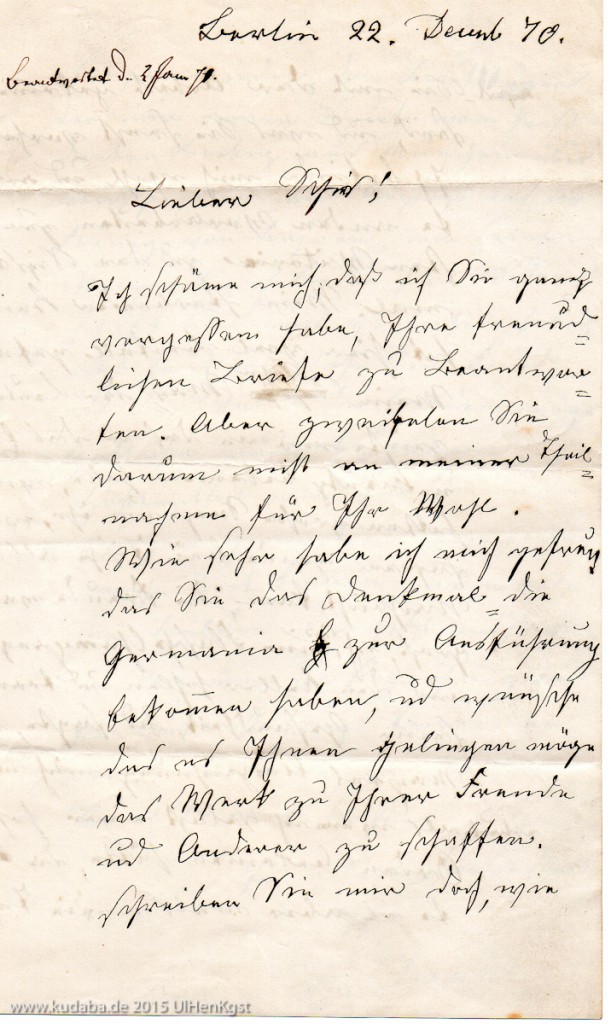 Berlin 22. Decemb 70.
Beantwortet d. 2 Jan 71.
Lieber
Ich schäme mich, daß ich Sie ganz
vergessen habe, Ihre freund=
lichen Briefe zu Beantwor=
ten. Aber zweifelen Sie
darum nicht an meiner Theil=
nahme für Ihr Wohl.
Wie sehr habe ich mich gefreut
das Sie das Denkmal= die
Germania zur Ausführung
bekom̄en haben, ud wünsche
das es Ihnen gelingen möge
das Werk zu Ihrer Freude
ud Anderer zu schaffen.
schreiben Sie mir doch, wie
www.kudaba.de 2015 UlHenKgst